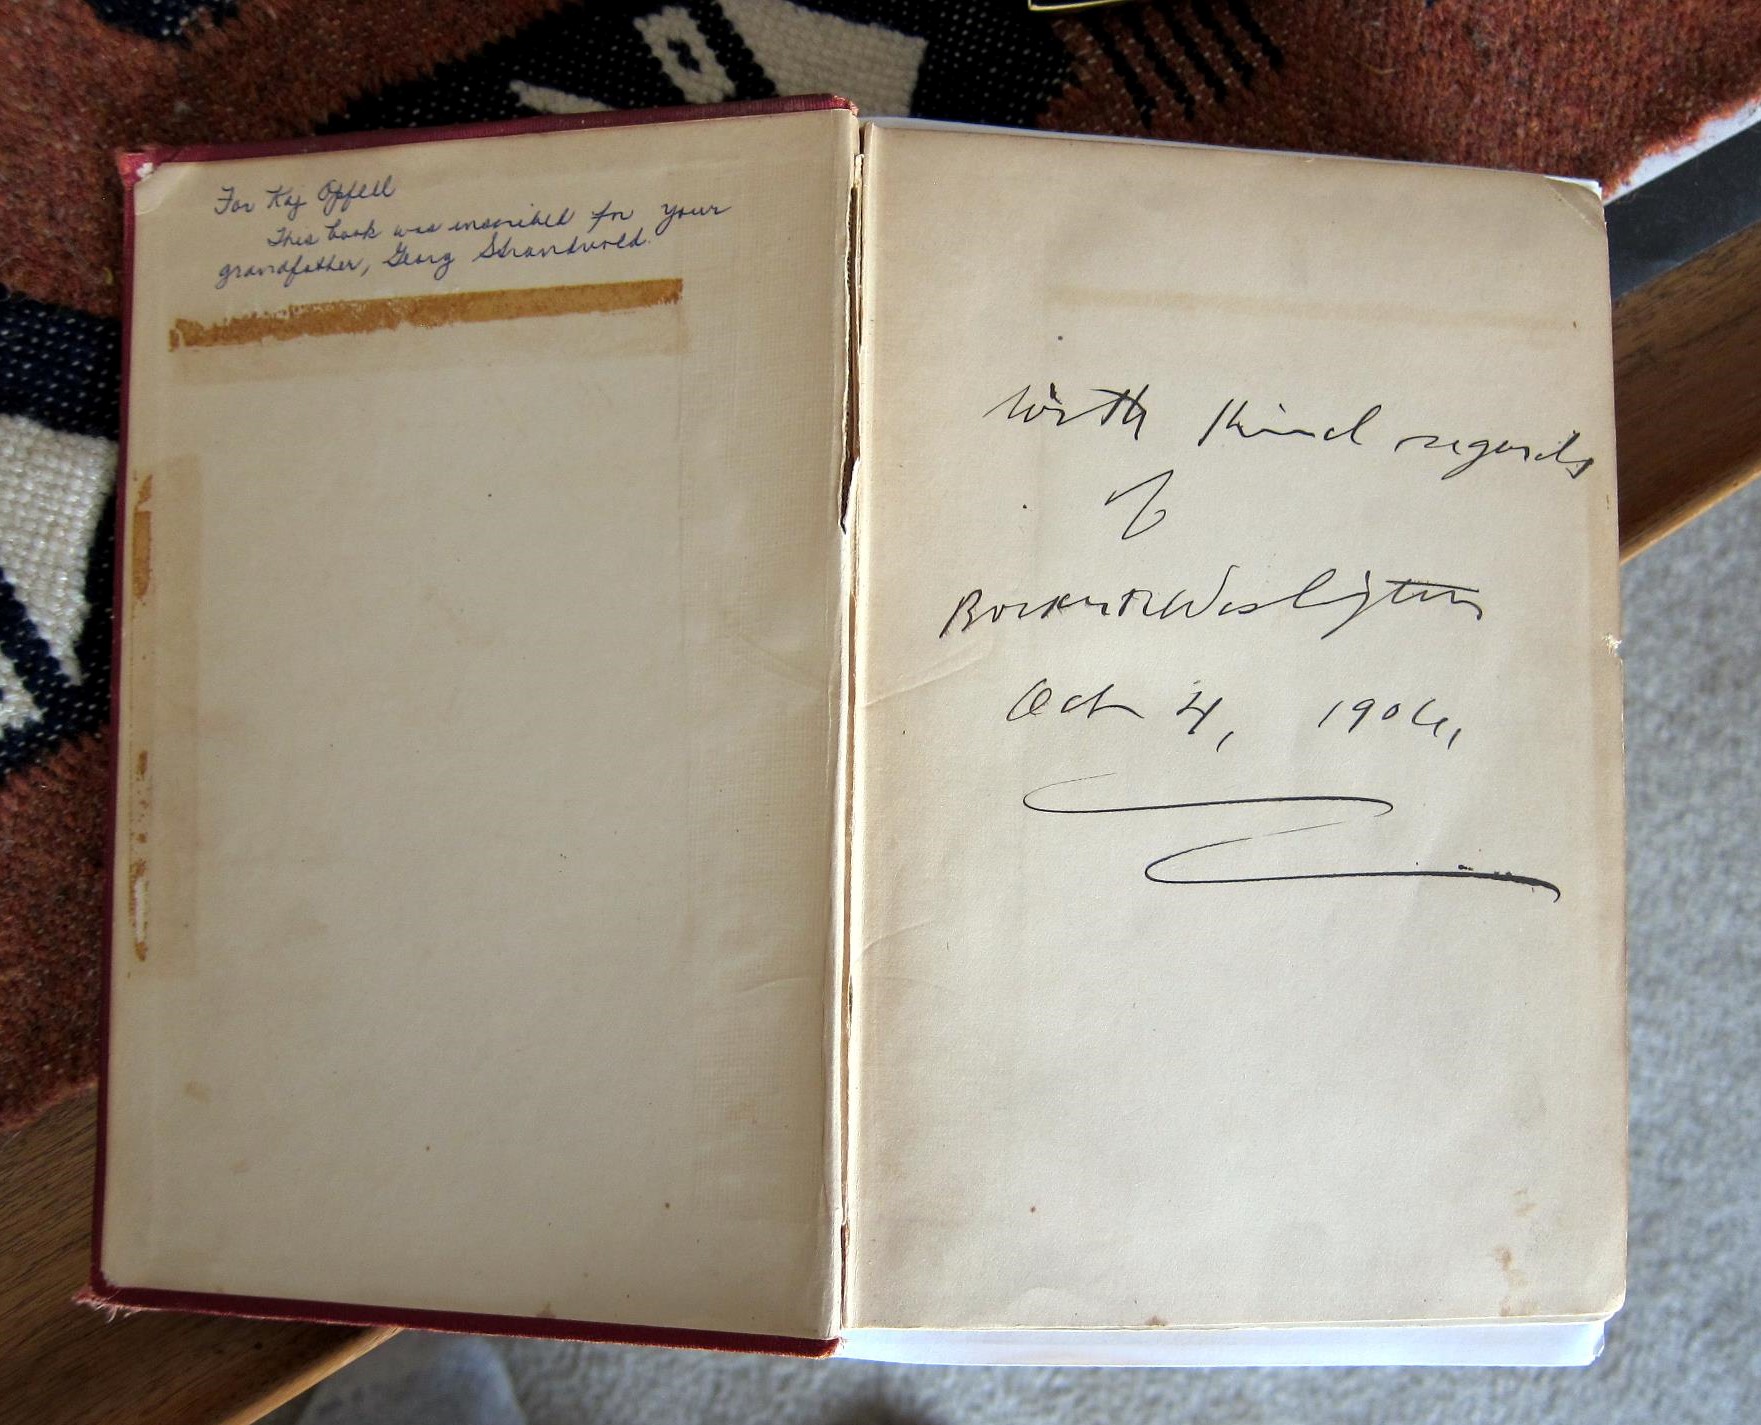 For Kaj Opfell
This book was inscribed for your
grandfather, Georg Strandvold.
With Kind regards
of
Booker T Washington
Oct 4, 1906,